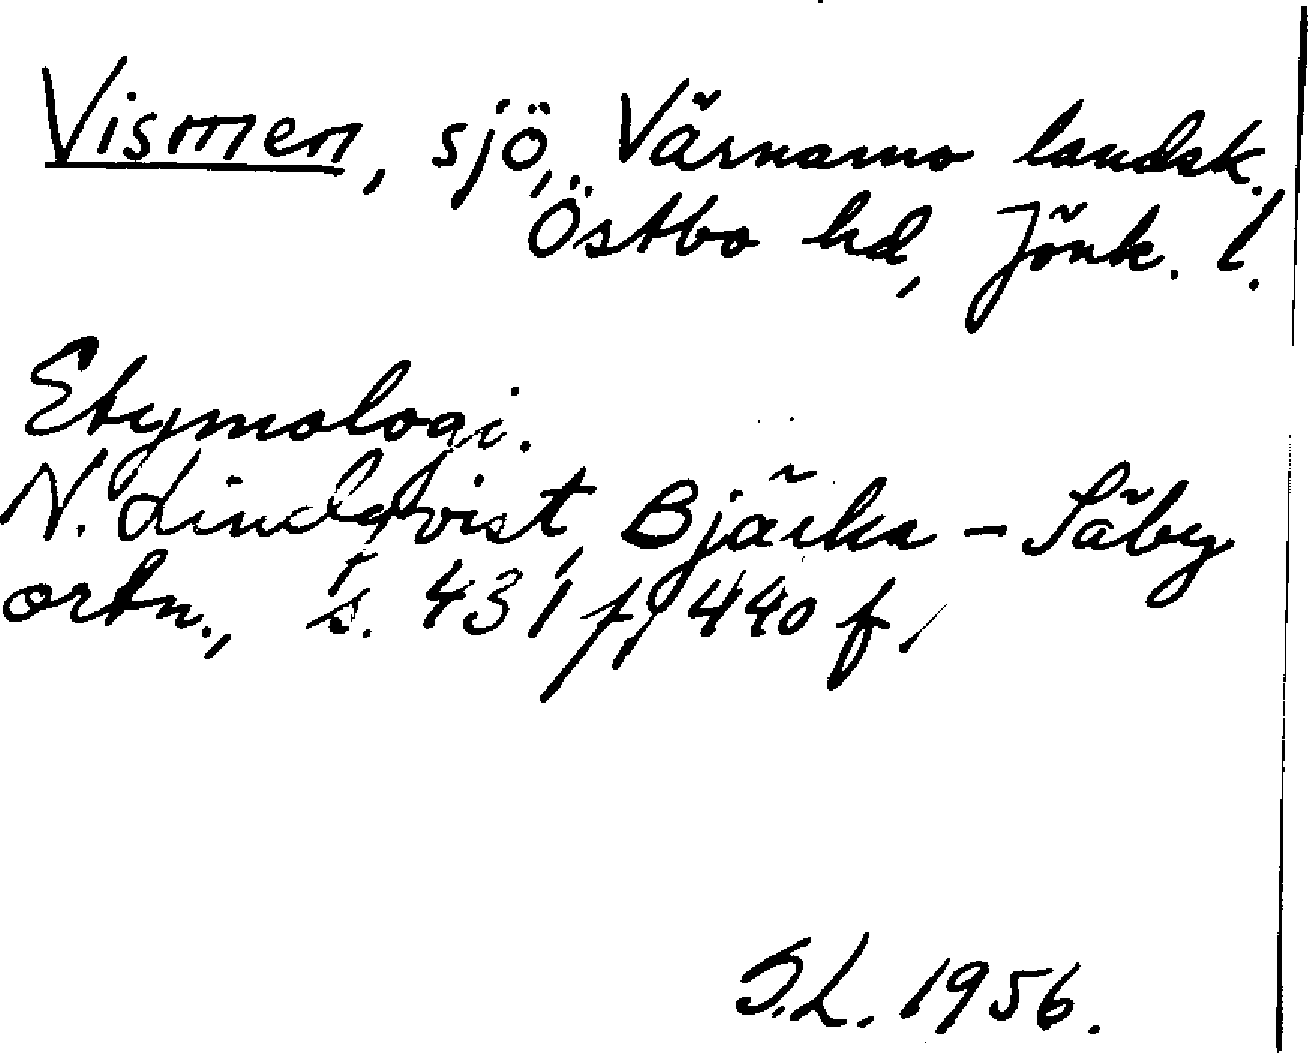 Vismen, sjö, Värnamo landsk.,
Östbo hd, Jönk. l.
Etymologi.
N. Lindqvist, Bjärka-Säby
ortn., s. 431 f, 440 f.
S.L. 1956.